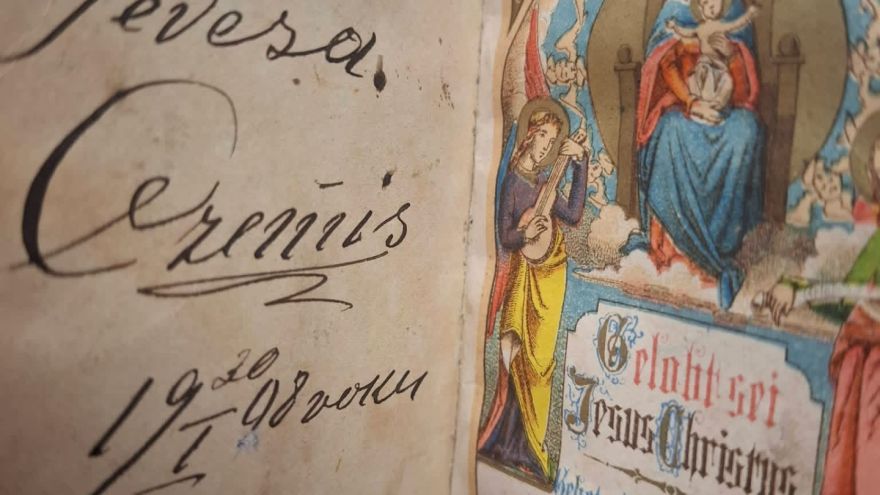 Teresa
19 30/I 08 roku
Gelobt sei
Jesus Christus